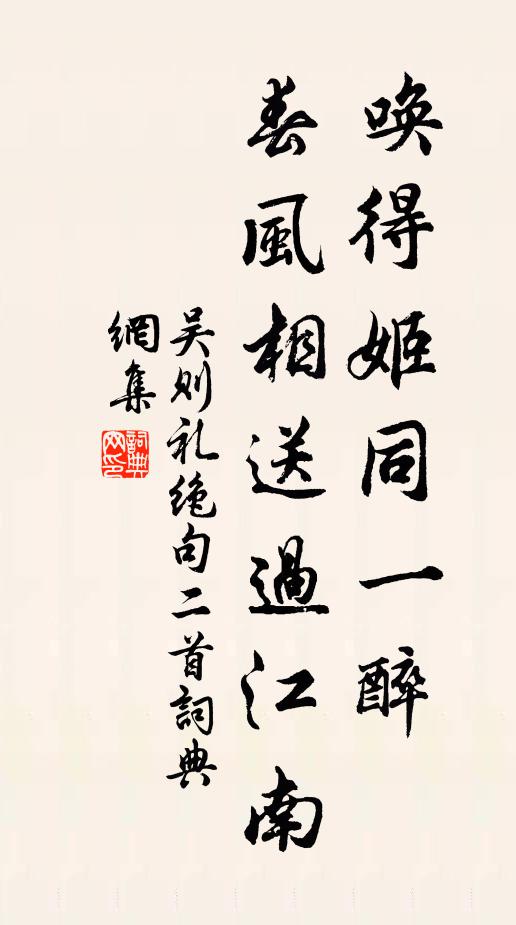 唤得姬同一醉
春風相送過江南
吴则礼绝句二首詞典
網集
詞典
网印